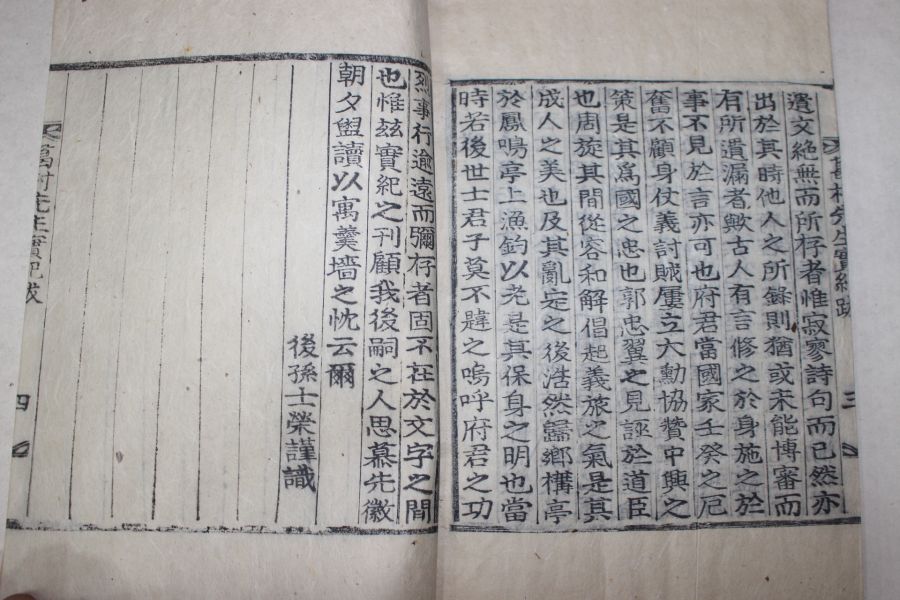 遺文絶無而所存者惟寂寥詩句而已然亦
出於其時他人之所錄則猶或未能博審而
有所遺漏者歟古人有言修之於身施之於
事不見於言亦可也府君當國家壬癸之厄
奮不顧身仗義討賊屢立大勳協贊中興之
策是其爲國之忠也郭忠翼之見誣於道臣
也周旋其間從容和解倡起義旅之氣是其
成人之美也及其亂定之後浩然歸鄉構亭
於鳳鳴亭上漁釣以老是其保身之明也當
時若後世士君子莫不韙之嗚呼府君之功
三
烈事行逾遠而彌存者固不在於文字之間
也惟玆實紀之刊顧我後嗣之人思慕先徽
朝夕盥讀以寓羹墻之忱云爾
後孫士榮謹識
先生實紀跋
四